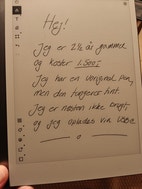 Hej!
Jeg er 2½ år gammel
og koster 1.500
Jeg har en uoriginal pen,
men den fungerer fint.
Jeg er næsten ikke brugt
og jeg oplades via USB-C